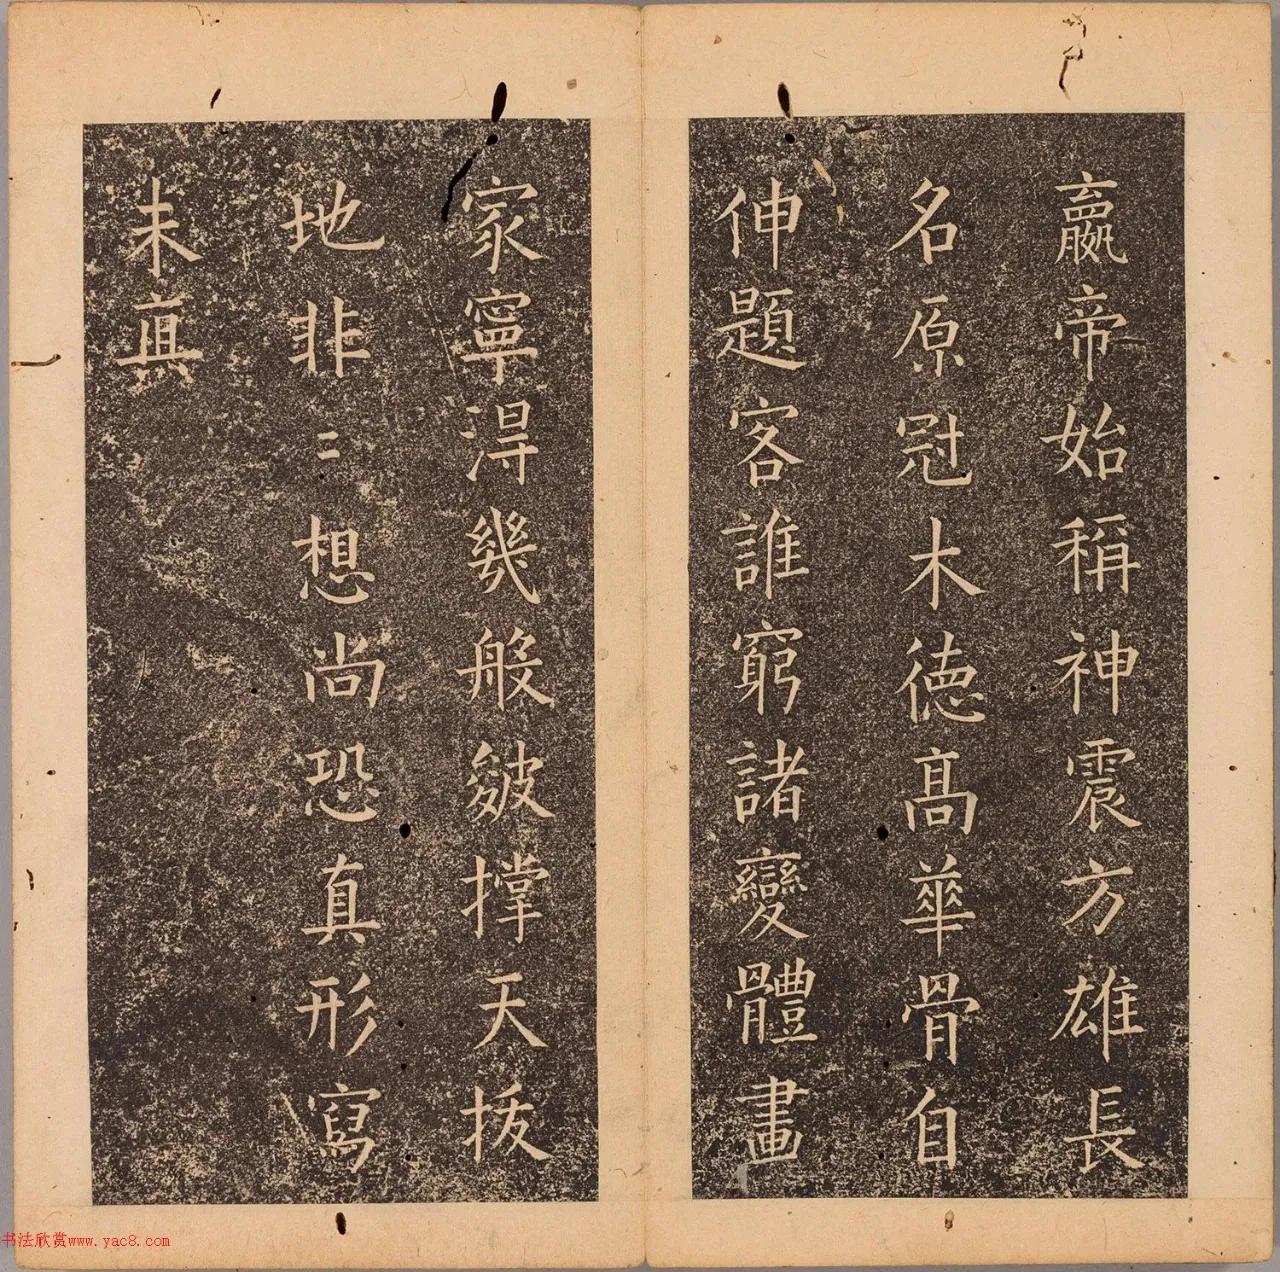 嬴帝始稱神震方雄長
名原冠木德高華骨自
伸題客誰窮諸變體畫
家寧得幾般皴撑天拔
地非二想尚恐真形寫
未真
书法欣赏www.yac8.com